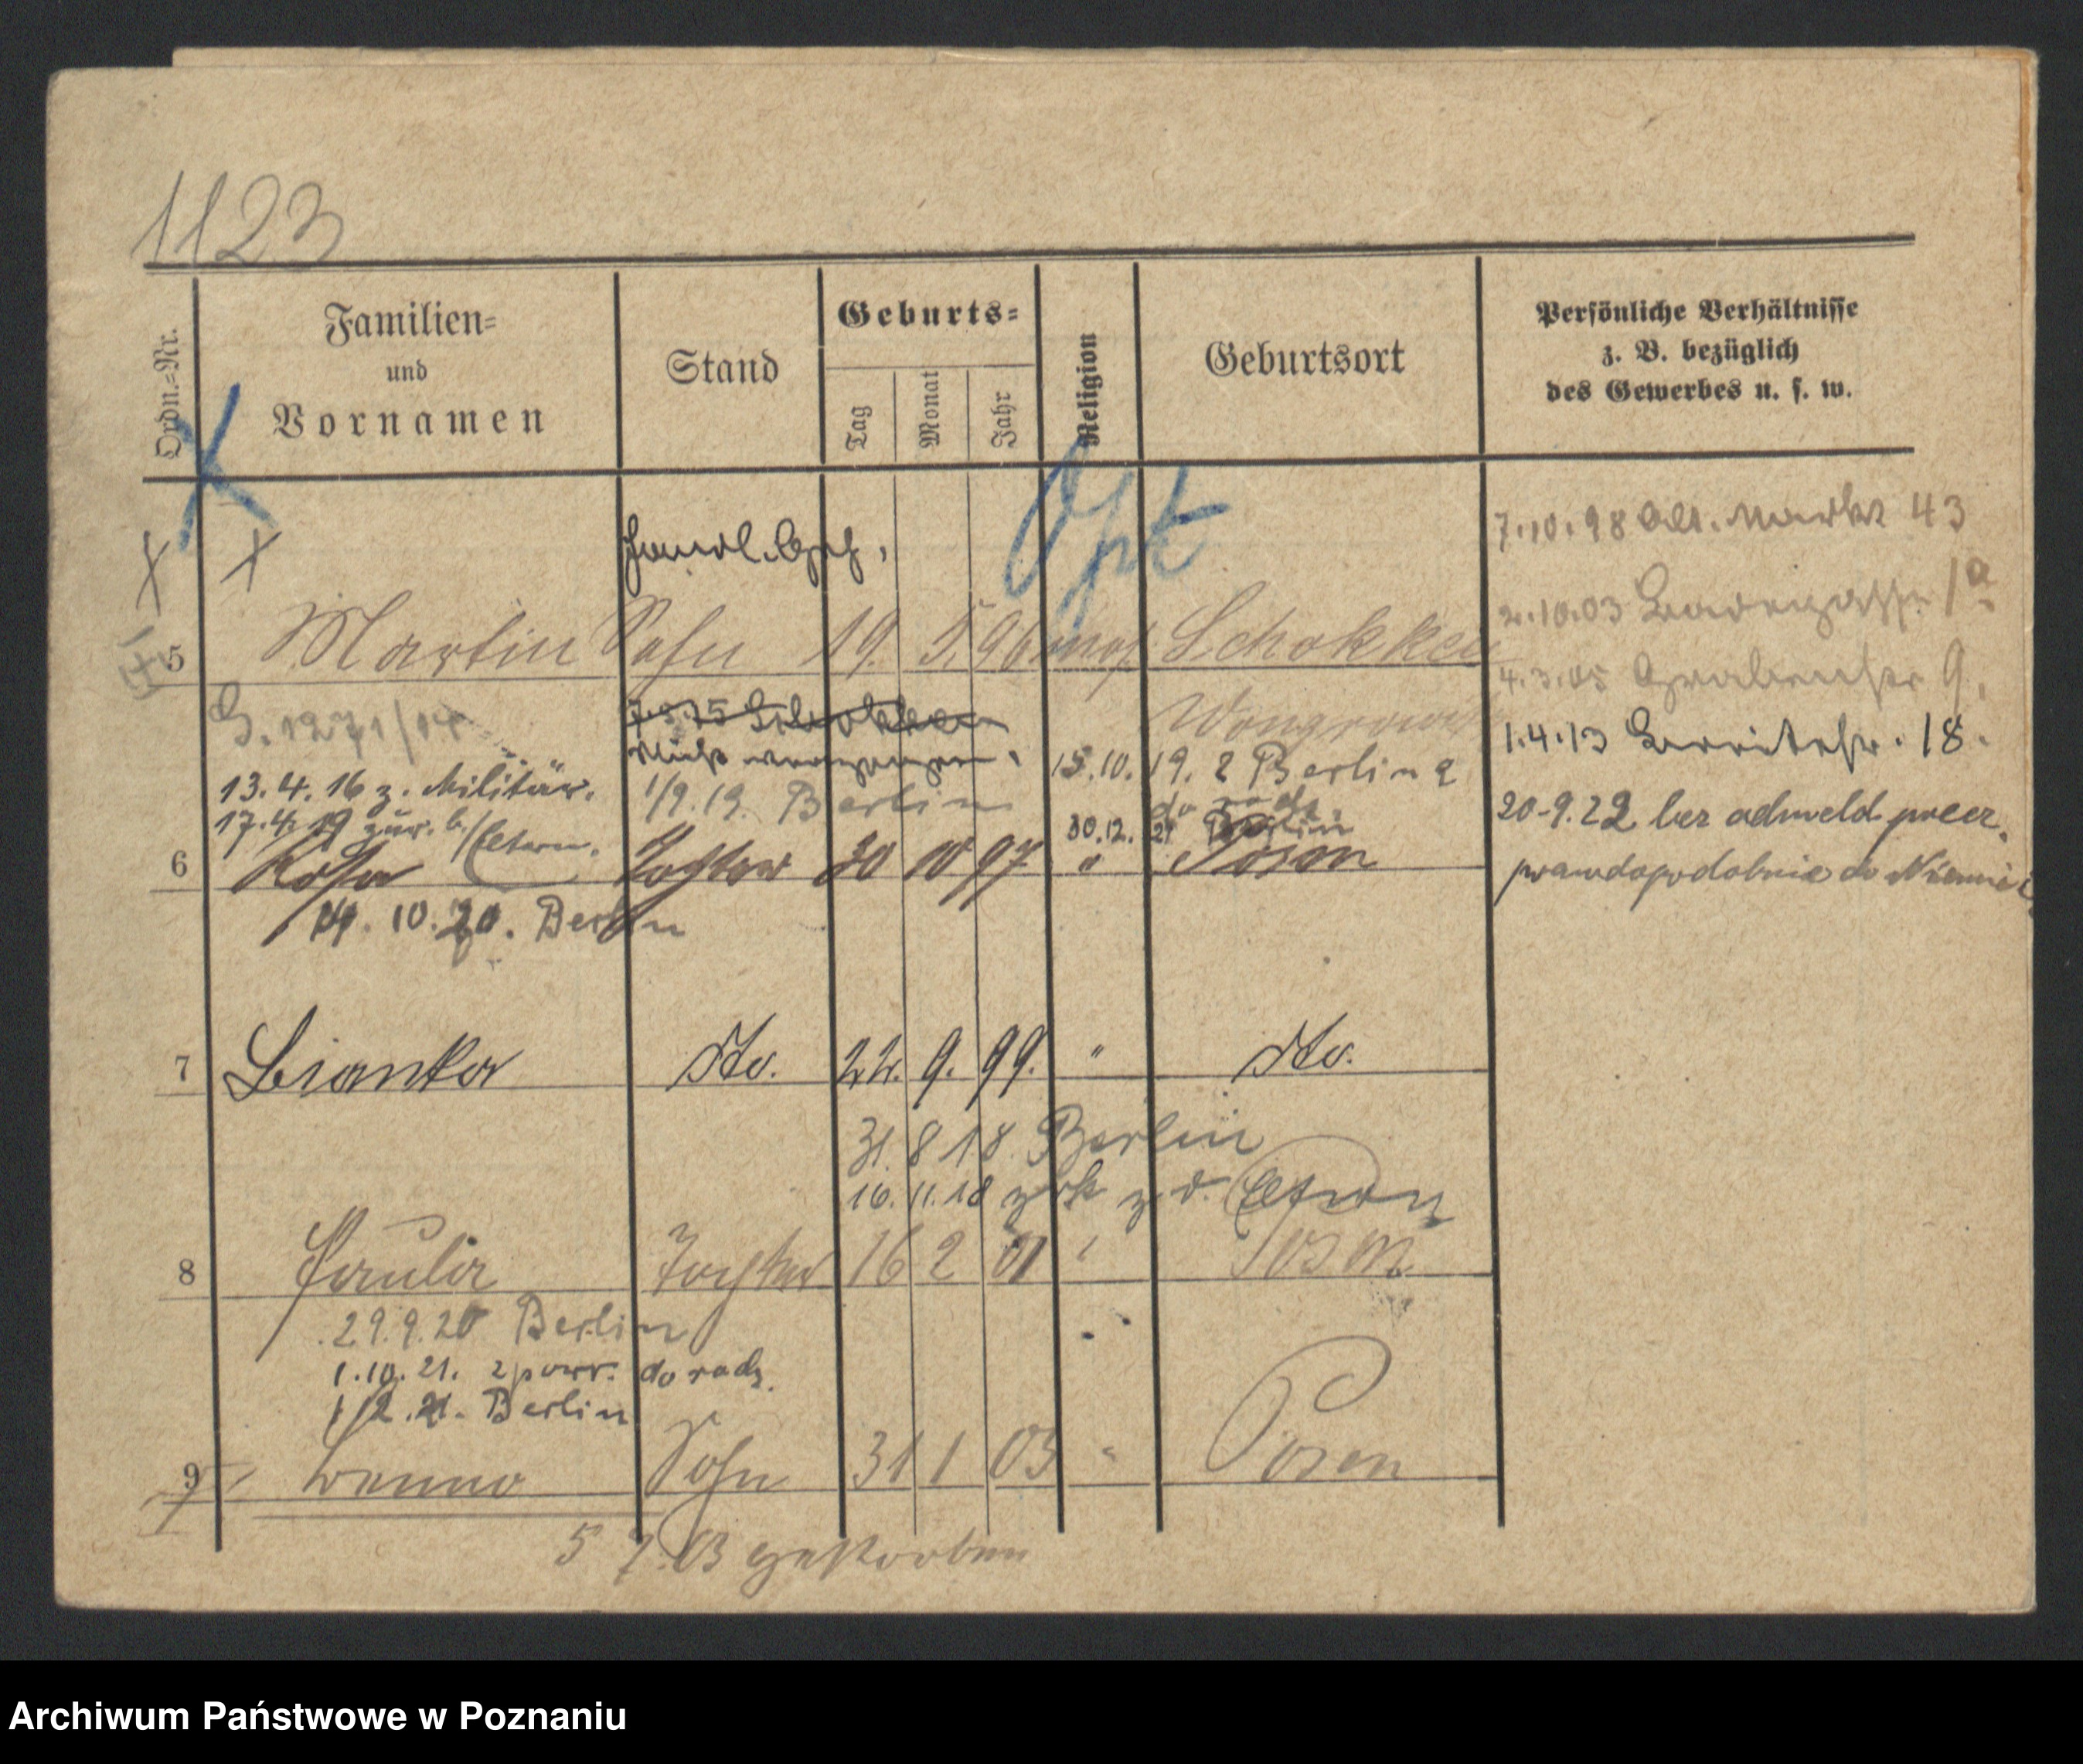 1123
Ordn.=Nr.
Familien=
und
Vornamen
Stand
Geburts=
Tag
Monat
Jahr
Religion
Geburtsort
Persönliche Verhältnisse
z. B. bezüglich
des Gewerbes u. s. w.
Opt
7.10.98 Alt. Markt 43
2.10.03 1a
4.3.05 Grabenstr 9.
1.4.13 Breitestr. 18.
20-9.22 bez odmeld przez.
prawdopodobnie do Niemiec
Handl. Geh.
5 Martin Sohn 19. 5. 96 mos. Schokken
Wongrowitz
G. 1271/14
7.9.15 Schokken
nicht verzogen.
13.4.16 z. Militär.
1/9.19. Berlin
15.10.19. z Berlina
do rodz.
17.4.19 zur. b/Eltern.
30.12.21 Berlin
6 Rosa Tochter 20 10 97 " Posen
14.10.20. Berlin
7 Bianka dto. 22. 9. 99. " dto.
31.8.18. Berlin
16.11.18 zrk z. d. Eltern
8 Paula Tochter 16 2 01 " Posen
29.9.20 Berlin
1.10.21. z powr. do rodz.
Berlin
9 Benno Sohn 31 1 03 " Posen
5 7.03 gestorben
Archiwum Państwowe w Poznaniu